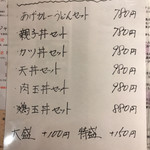 あげカレーうどんセット 780円
親子丼セット 780円
カツ丼セット 980円
天丼セット 980円
肉玉丼セット 980円
鶏玉丼セット 880円
大盛 +100円 特盛 +150円